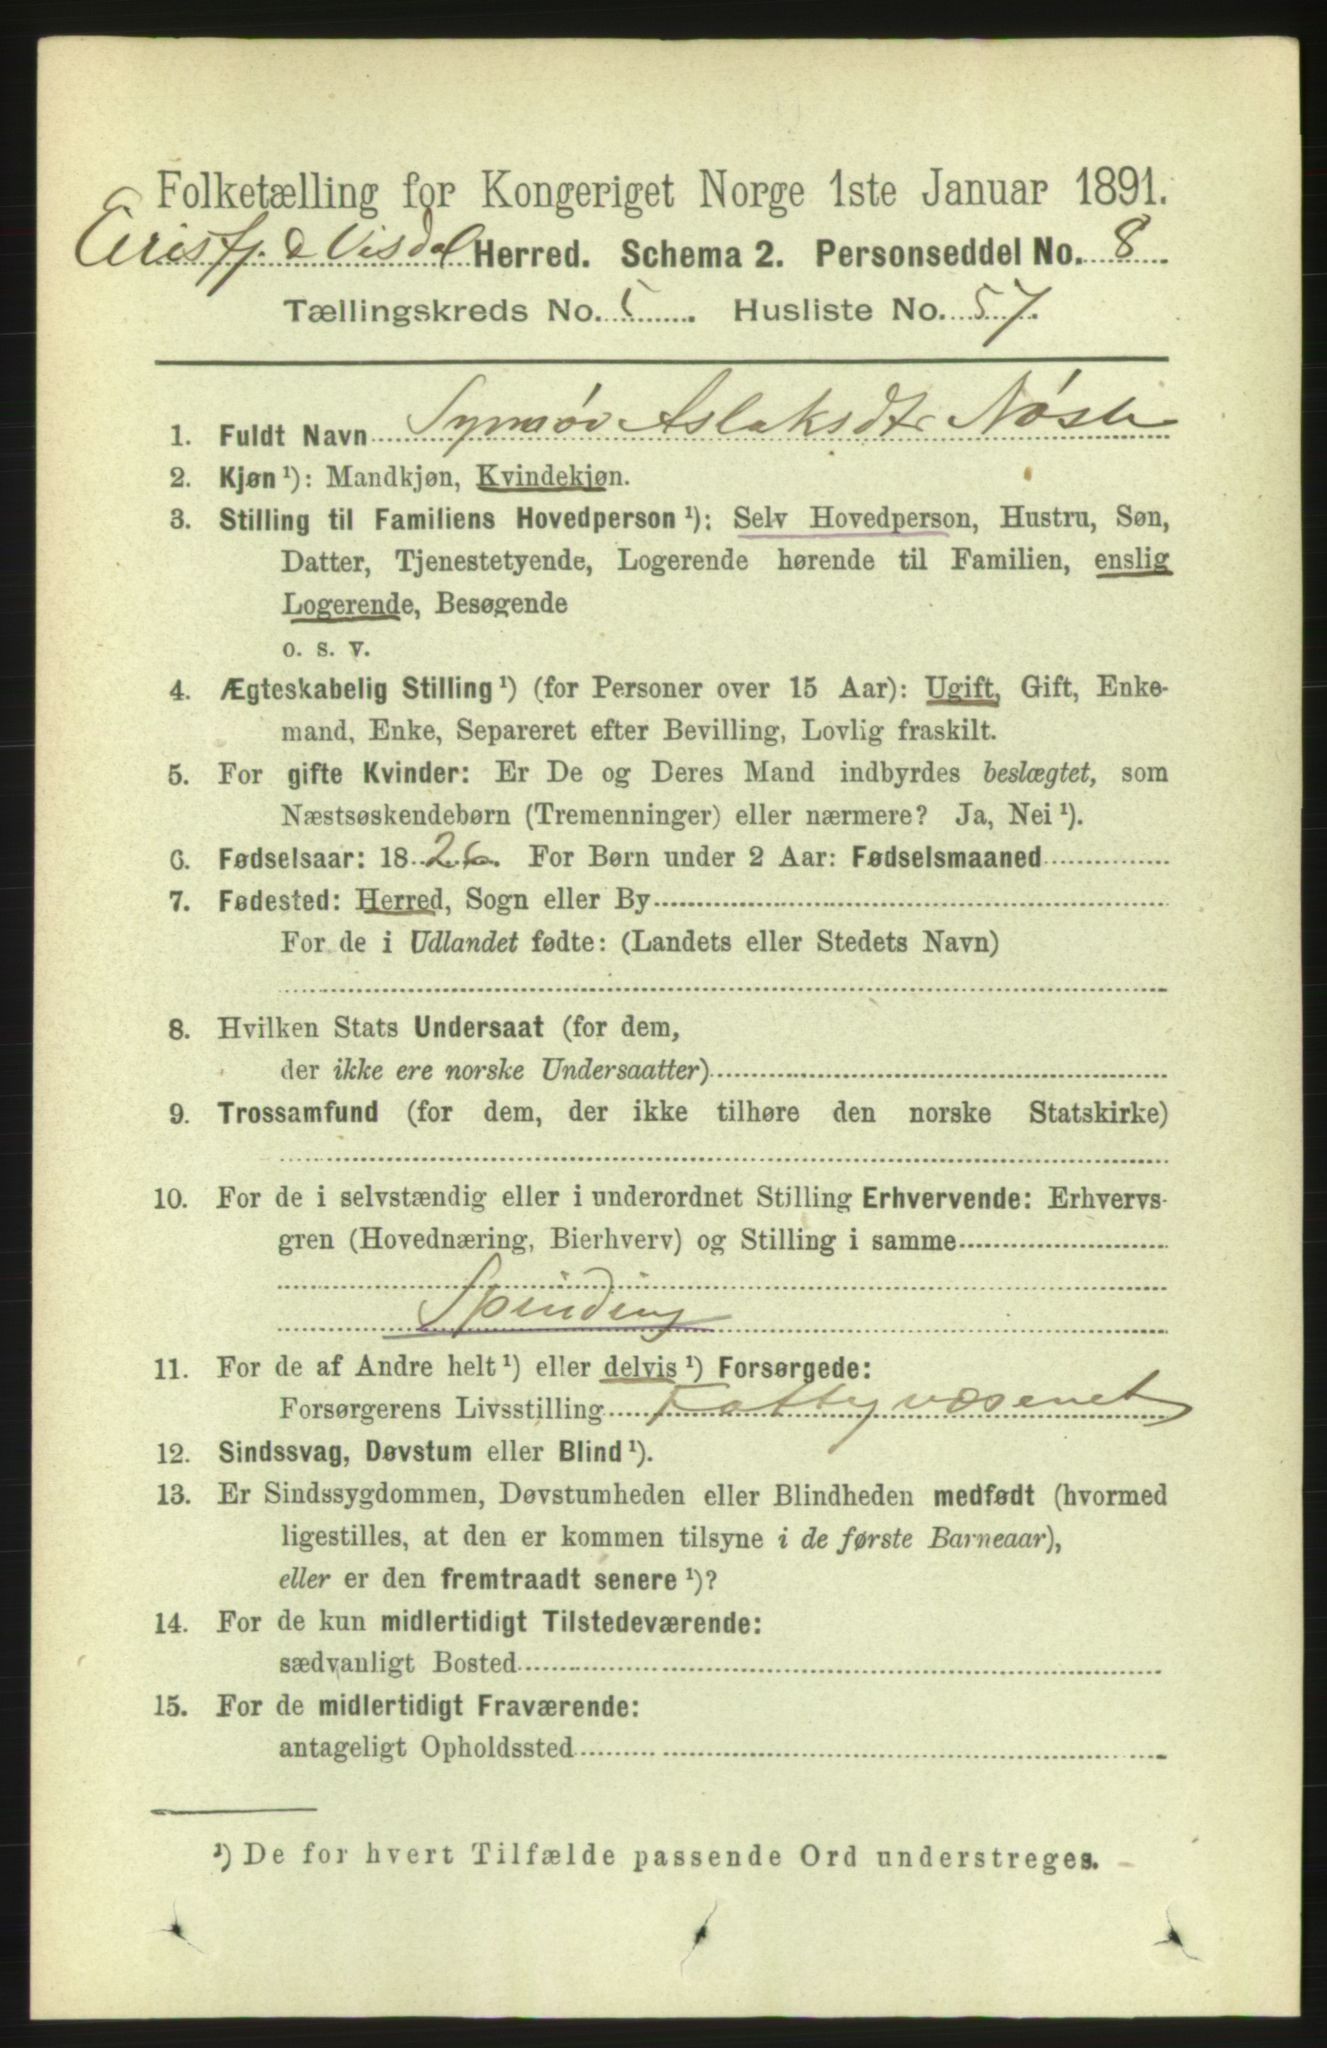 Folketælling for Kongeriget Norge 1ste Januar 1891.
Eirisfj. & Visdal Herred. Schema 2. Personseddel No. 8
Tællingskreds No. 5. Husliste No. 57.
1. Fuldt Navn Synnøv Aslaksdtr Nøste
2. Kjøn ¹): Mandkjøn, Kvindekjøn.
3. Stilling til Familiens Hovedperson ¹): Selv Hovedperson, Hustru, Søn,
Datter, Tjenestetyende, Logerende hørende til Familien, enslig
Logerende, Besøgende
o. s. v.
4. Ægteskabelig Stilling ¹) (for Personer over 15 Aar): Ugift, Gift, Enke-
mand, Enke, Separeret efter Bevilling, Lovlig fraskilt.
5. For gifte Kvinder: Er De og Deres Mand indbyrdes beslægtet, som
Næstsøskendebørn (Tremenninger) eller nærmere? Ja, Nei ¹).
6. Fødselsaar: 1826. For Børn under 2 Aar: Fødselsmaaned
7. Fødested: Herred, Sogn eller By
For de i Udlandet fødte: (Landets eller Stedets Navn)
8. Hvilken Stats Undersaat (for dem,
der ikke ere norske Undersaatter)
9. Trossamfund (for dem, der ikke tilhøre den norske Statskirke)
10. For de i selvstændig eller i underordnet Stilling Erhvervende: Erhvervs-
gren (Hovednæring, Bierhverv) og Stilling i samme
Spinding
11. For de af Andre helt ¹) eller delvis ¹) Forsørgede:
Forsørgerens Livsstilling Fattigvæsenet
12. Sindssvag, Døvstum eller Blind ¹).
13. Er Sindssygdommen, Døvstumheden eller Blindheden medfødt (hvormed
ligestilles, at den er kommen tilsyne i de første Barneaar),
eller er den fremtraadt senere ¹)?
14. For de kun midlertidigt Tilstedeværende:
sædvanligt Bosted
15. For de midlertidigt Fraværende:
antageligt Opholdssted
¹) De for hvert Tilfælde passende Ord understreges.